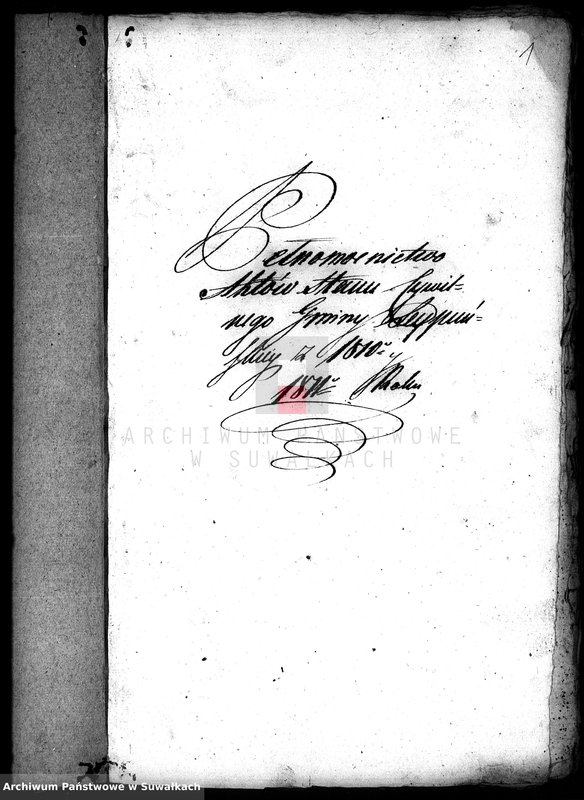 1
Pełnomocnictwo
Aktów Stanu Cywil=
nego Gminy Seypuń=
skiey z 1810º y
1811º Roku
ARCHIWUM PAŃSTWOWE
W SUWAŁKACH
Archiwum Państwowe w Suwałkach